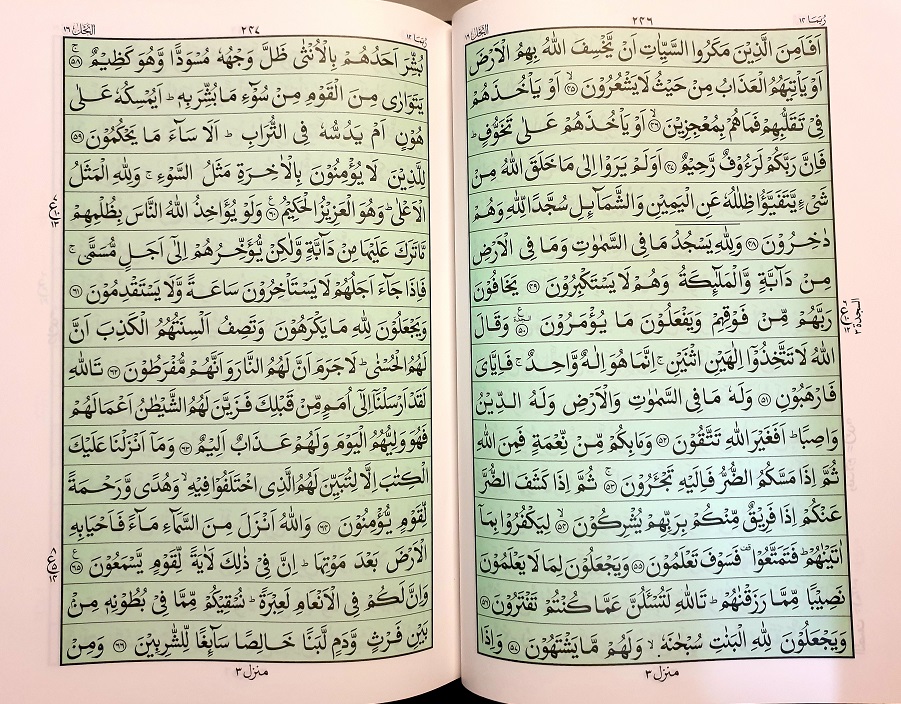 رُبَمَا ١٤
٢٤٦
النَّحْل ١٦
اَفَاَمِنَ الَّذِيْنَ مَكَرُوا السَّيِّاٰتِ اَنْ يَّخْسِفَ اللّٰهُ بِهِمُ الْاَرْضَ
اَوْ يَاْتِيَهُمُ الْعَذَابُ مِنْ حَيْثُ لَا يَشْعُرُوْنَ ﴿٤٥﴾ اَوْ يَاْخُذَهُمْ
فِيْ تَقَلُّبِهِمْ فَمَا هُمْ بِمُعْجِزِيْنَ ﴿٤٦﴾ اَوْ يَاْخُذَهُمْ عَلٰى تَخَوُّفٍ ؕ
فَاِنَّ رَبَّكُمْ لَرَءُوْفٌ رَّحِيْمٌ ﴿٤٧﴾ اَوَلَمْ يَرَوْا اِلٰى مَا خَلَقَ اللّٰهُ مِنْ
شَيْءٍ يَّتَفَيَّؤُا ظِلٰلُهٗ عَنِ الْيَمِيْنِ وَالشَّمَآئِلِ سُجَّدًا لِّلّٰهِ وَهُمْ
دٰخِرُوْنَ ﴿٤٨﴾ وَلِلّٰهِ يَسْجُدُ مَا فِي السَّمٰوٰتِ وَمَا فِي الْاَرْضِ
مِنْ دَآبَّةٍ وَّالْمَلٰٓئِكَةُ وَهُمْ لَا يَسْتَكْبِرُوْنَ ﴿٤٩﴾ يَخَافُوْنَ
رَبَّهُمْ مِّنْ فَوْقِهِمْ وَيَفْعَلُوْنَ مَا يُؤْمَرُوْنَ ﴿٥٠﴾ وَقَالَ
اللّٰهُ لَا تَتَّخِذُوْٓا اِلٰهَيْنِ اثْنَيْنِ ۚ اِنَّمَا هُوَ اِلٰهٌ وَّاحِدٌ ۚ فَاِيَّايَ
فَارْهَبُوْنِ ﴿٥١﴾ وَلَهٗ مَا فِي السَّمٰوٰتِ وَالْاَرْضِ وَلَهُ الدِّيْنُ
وَاصِبًا ؕ اَفَغَيْرَ اللّٰهِ تَتَّقُوْنَ ﴿٥٢﴾ وَمَا بِكُمْ مِّنْ نِّعْمَةٍ فَمِنَ اللّٰهِ
ثُمَّ اِذَا مَسَّكُمُ الضُّرُّ فَاِلَيْهِ تَجْـَٔرُوْنَ ﴿٥٣﴾ ثُمَّ اِذَا كَشَفَ الضُّرَّ
عَنْكُمْ اِذَا فَرِيْقٌ مِّنْكُمْ بِرَبِّهِمْ يُشْرِكُوْنَ ﴿٥٤﴾ لِيَكْفُرُوْا بِمَآ
اٰتَيْنٰهُمْ ؕ فَتَمَتَّعُوْا ۫ فَسَوْفَ تَعْلَمُوْنَ ﴿٥٥﴾ وَيَجْعَلُوْنَ لِمَا لَا يَعْلَمُوْنَ
نَصِيْبًا مِّمَّا رَزَقْنٰهُمْ ؕ تَاللّٰهِ لَتُسْـَٔلُنَّ عَمَّا كُنْتُمْ تَفْتَرُوْنَ ﴿٥٦﴾
وَيَجْعَلُوْنَ لِلّٰهِ الْبَنٰتِ سُبْحٰنَهٗ ۙ وَلَهُمْ مَّا يَشْتَهُوْنَ ﴿٥٧﴾ وَاِذَا
السجدة ٣
منزل ٣
رُبَمَا ١٤
٢٤٧
النَّحْل ١٦
بُشِّرَ اَحَدُهُمْ بِالْاُنْثٰى ظَلَّ وَجْهُهٗ مُسْوَدًّا وَّهُوَ كَظِيْمٌ ﴿٥٨﴾ ۚ
يَتَوَارٰى مِنَ الْقَوْمِ مِنْ سُوْٓءِ مَا بُشِّرَ بِهٖ ؕ اَيُمْسِكُهٗ عَلٰى
هُوْنٍ اَمْ يَدُسُّهٗ فِي التُّرَابِ ؕ اَلَا سَآءَ مَا يَحْكُمُوْنَ ﴿٥٩﴾
لِلَّذِيْنَ لَا يُؤْمِنُوْنَ بِالْاٰخِرَةِ مَثَلُ السَّوْءِ ۚ وَلِلّٰهِ الْمَثَلُ
الْاَعْلٰى ؕ وَهُوَ الْعَزِيْزُ الْحَكِيْمُ ﴿٦٠﴾ وَلَوْ يُؤَاخِذُ اللّٰهُ النَّاسَ بِظُلْمِهِمْ
مَّا تَرَكَ عَلَيْهَا مِنْ دَآبَّةٍ وَّلٰكِنْ يُّؤَخِّرُهُمْ اِلٰٓى اَجَلٍ مُّسَمًّى ۚ
فَاِذَا جَآءَ اَجَلُهُمْ لَا يَسْتَاْخِرُوْنَ سَاعَةً وَّلَا يَسْتَقْدِمُوْنَ ﴿٦١﴾
وَيَجْعَلُوْنَ لِلّٰهِ مَا يَكْرَهُوْنَ وَتَصِفُ اَلْسِنَتُهُمُ الْكَذِبَ اَنَّ
لَهُمُ الْحُسْنٰى ؕ لَا جَرَمَ اَنَّ لَهُمُ النَّارَ وَاَنَّهُمْ مُّفْرَطُوْنَ ﴿٦٢﴾ تَاللّٰهِ
لَقَدْ اَرْسَلْنَآ اِلٰٓى اُمَمٍ مِّنْ قَبْلِكَ فَزَيَّنَ لَهُمُ الشَّيْطٰنُ اَعْمَالَهُمْ
فَهُوَ وَلِيُّهُمُ الْيَوْمَ وَلَهُمْ عَذَابٌ اَلِيْمٌ ﴿٦٣﴾ وَمَآ اَنْزَلْنَا عَلَيْكَ
الْكِتٰبَ اِلَّا لِتُبَيِّنَ لَهُمُ الَّذِي اخْتَلَفُوْا فِيْهِ ۙ وَهُدًى وَّرَحْمَةً
لِّقَوْمٍ يُّؤْمِنُوْنَ ﴿٦٤﴾ وَاللّٰهُ اَنْزَلَ مِنَ السَّمَآءِ مَآءً فَاَحْيَا بِهِ
الْاَرْضَ بَعْدَ مَوْتِهَا ؕ اِنَّ فِيْ ذٰلِكَ لَاٰيَةً لِّقَوْمٍ يَّسْمَعُوْنَ ﴿٦٥﴾
وَاِنَّ لَكُمْ فِي الْاَنْعَامِ لَعِبْرَةً ؕ نُسْقِيْكُمْ مِّمَّا فِيْ بُطُوْنِهٖ مِنْۢ
بَيْنِ فَرْثٍ وَّدَمٍ لَّبَنًا خَالِصًا سَآئِغًا لِّلشّٰرِبِيْنَ ﴿٦٦﴾ وَمِنْ
منزل ٣